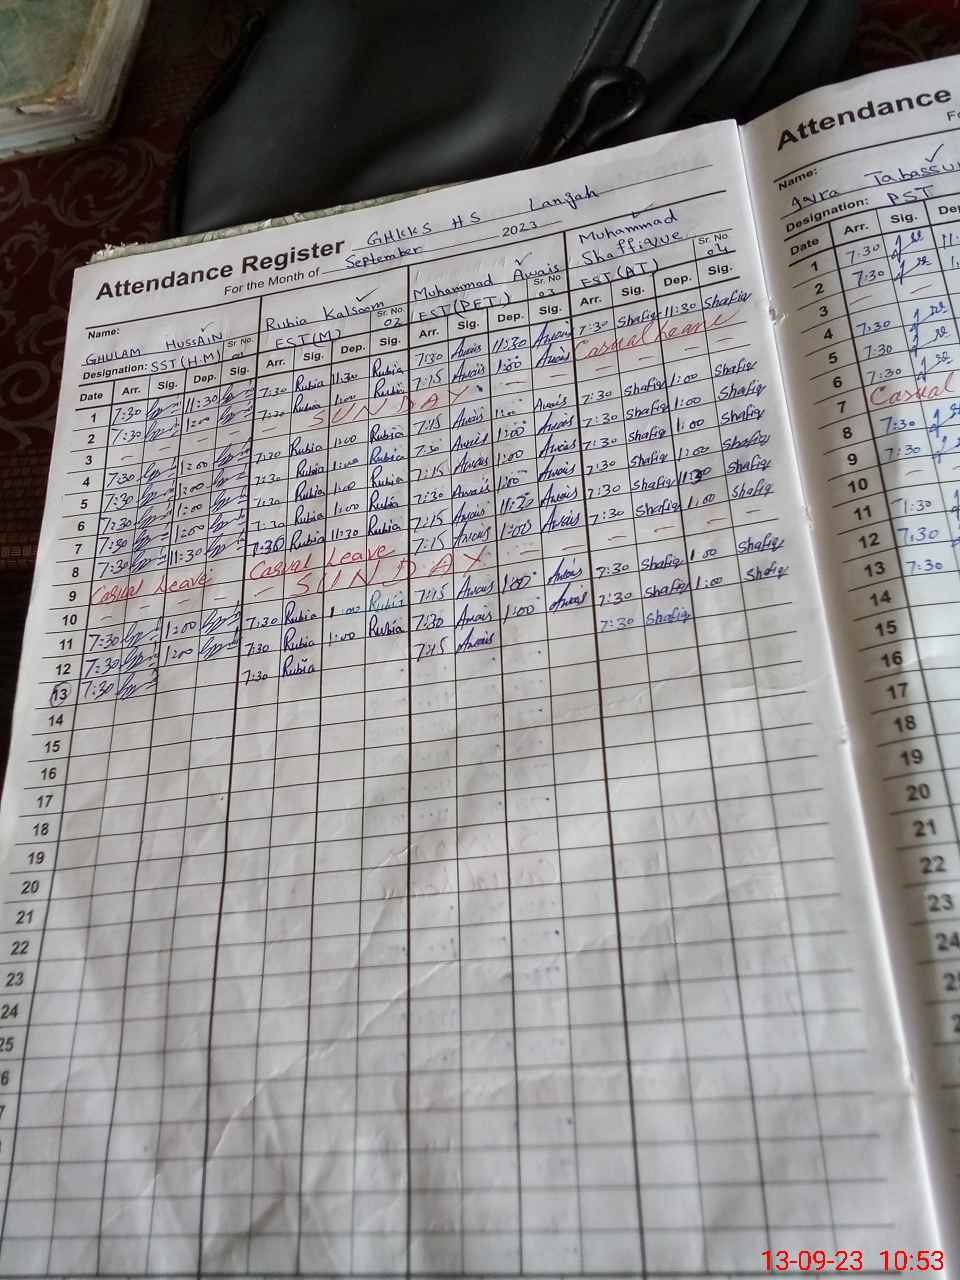 Attendance Register GHKKS HS Langah
For the Month of September 2023
Name: GHULAM HUSSAIN Rubia Kalsoom Muhammad Awais Muhammad Shaffique
Designation: SST (H.M) Sr. No. 01 EST (M) Sr. No. 02 EST (PET) Sr. No. 03 EST (AT) Sr. No. 04
Date Arr. Sig. Dep. Sig. Arr. Sig. Dep. Sig. Arr. Sig. Dep. Sig. Arr. Sig. Dep. Sig.
1 7:30 11:30 7:30 Rubia 11:30 Rubia 7:30 Awais 11:30 Awais 7:30 Shafiq 11:30 Shafiq
2 7:30 1:00 7:30 Rubia 1:00 Rubia 7:15 Awais 1:00 Awais Casual Leave
3 — — — — SUNDAY — — — —
4 7:30 1:00 7:30 Rubia 1:00 Rubia 7:15 Awais 1:00 Awais 7:30 Shafiq 1:00 Shafiq
5 7:30 1:00 7:30 Rubia 1:00 Rubia 7:30 Awais 1:00 Awais 7:30 Shafiq 1:00 Shafiq
6 7:30 1:00 7:30 Rubia 1:00 Rubia 7:15 Awais 1:00 Awais 7:30 Shafiq 1:00 Shafiq
7 7:30 1:00 7:30 Rubia 1:00 Rubia 7:30 Awais 1:00 Awais 7:30 Shafiq 1:00 Shafiq
8 7:30 11:30 7:30 Rubia 11:30 Rubia 7:15 Awais 11:30 Awais 7:30 Shafiq 11:30 Shafiq
9 Casual Leave Casual Leave 7:15 Awais 1:00 Awais 7:30 Shafiq 1:00 Shafiq
10 — — — — SUNDAY — — — —
11 7:30 1:00 7:30 Rubia 1:00 Rubia 7:15 Awais 1:00 Awais 7:30 Shafiq 1:00 Shafiq
12 7:30 1:00 7:30 Rubia 1:00 Rubia 7:30 Awais 1:00 Awais 7:30 Shafiq 1:00 Shafiq
13 7:30 7:30 Rubia 7:15 Awais 7:30 Shafiq
14
15
16
17
18
19
20
21
22
23
24
25
6
7
Attendance
Name: Tabassum
Designation: PST
Date Arr. Sig.
1 7:30
2 7:30
3 — —
4 7:30
5 7:30
6 7:30
7 Casual
8 7:30
9 7:30
10
11 7:30
12 7:30
13 7:30
14
15
16
17
18
19
20
21
22
23
24
13-09-23 10:53